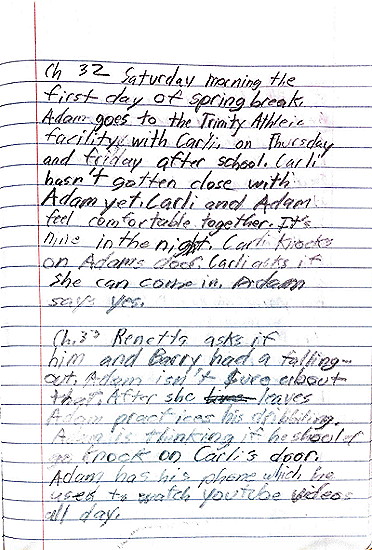 Ch 32 Saturday morning the
first day of spring break.
Adam goes to the Trinity Athleic
facility with Carli. on Thursday
and friday after school. Carli
hasn't gotten close with
Adam yet. Carli and Adam
feel comfortable together. It's
nine in the night. Carli knocks
on Adams door. Carli asks if
she can come in. Adam
says yes.
Ch.33 Renetta asks if
him and Barry had a falling-
out. Adam isn't sure about
that. After she leaves
Adam practices his dribbling.
Adam is thinking if he should
go knock on Carli's door.
Adam has his phone which he
uses to watch youtube videos
all day.